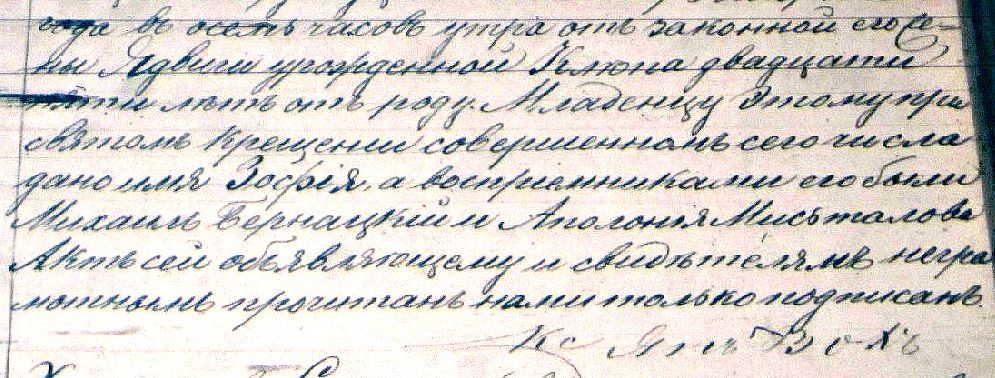 года въ осемь часовъ утра отъ законной его же=
ны Ядвиги урожденной Клюпа двадцати
пяти лѣтъ отъ роду. Младенцу этому при
святомъ крещеніи совершенномъ сего числа
дано имя Зофія, а воспріемниками его были
Михаилъ Бернацкій и Аполонія
Актъ сей объявляющему и свидѣтелямъ негра
мотнымъ прочитанъ нами только подписанъ.
Кс Янъ